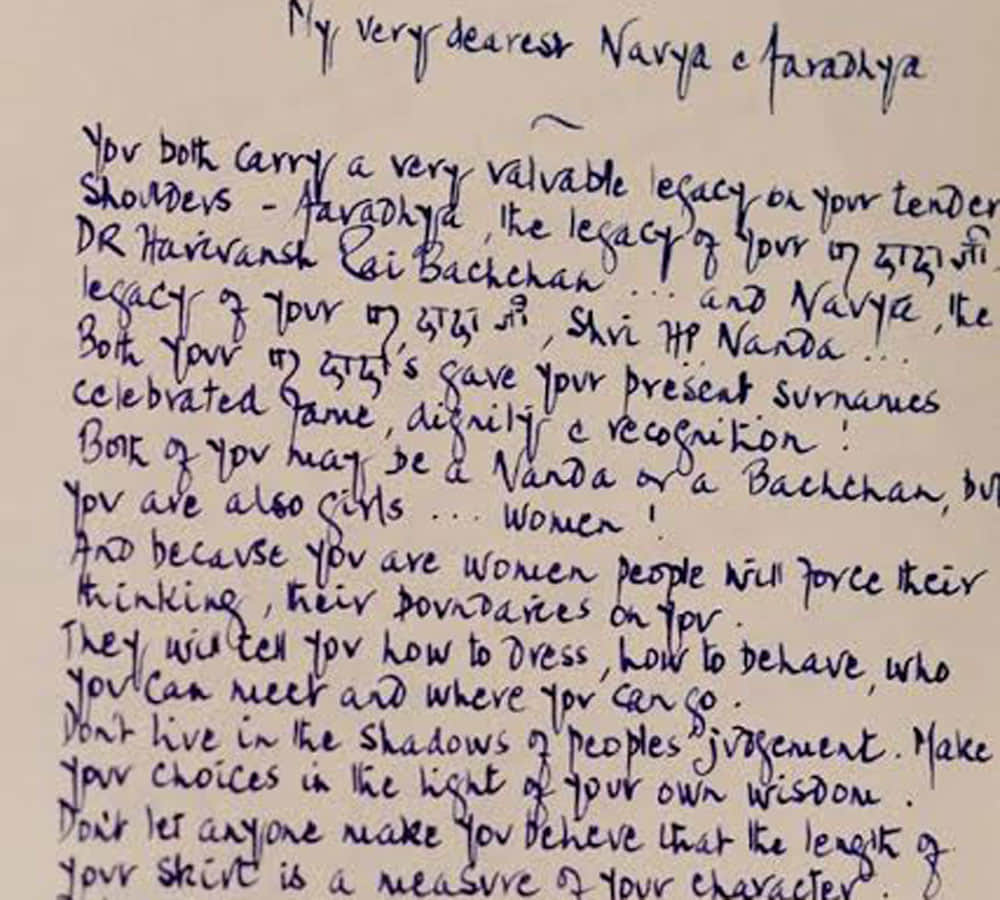 My very dearest Navya & Aaradhya
~
You both carry a very valuable legacy on your tender
Shoulders - Aaradhya, the legacy of your पर दादाजी
DR Harivansh Rai Bachchan ... and Navya, the
legacy of your पर दादाजी, Shri HP Nanda ...
Both your पर दादा's gave your present surnames
celebrated fame, dignity & recognition !
Both of you may be a Nanda or a Bachchan, but
you are also girls ... women !
And because you are women people will force their
thinking, their boundaries on you.
They will tell you how to dress, how to behave, who
you can meet and where you can go.
Don't live in the shadows of peoples' judgement. Make
your choices in the light of your own wisdom.
Don't let anyone make you believe that the length of
your skirt is a measure of your character.